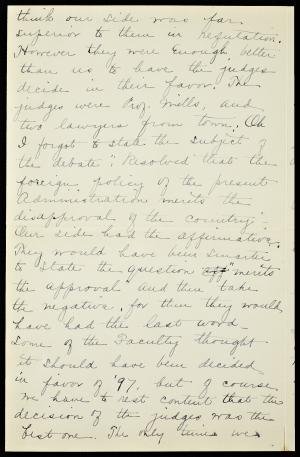 think our side was far
superior to them in refutation.
However they were enough better
than us to have the judges
decide in their favor. The
judges were Prof. Mills, and
two lawyers from town. Oh
I forgot to state the subject of
the debate; "Resolved that the
foreign policy of the present
Administration merits the
disapproval of the country"-
Our side had the affirmative.
They would have been smarter
to state the question "merits
the approval" and then take
the negative, for then they would
have had the last word-
Some of the Faculty thought
it should have been decided
in favor of '97, but of course
we have to rest content that the
decision of the judges was the
best one. The only time we